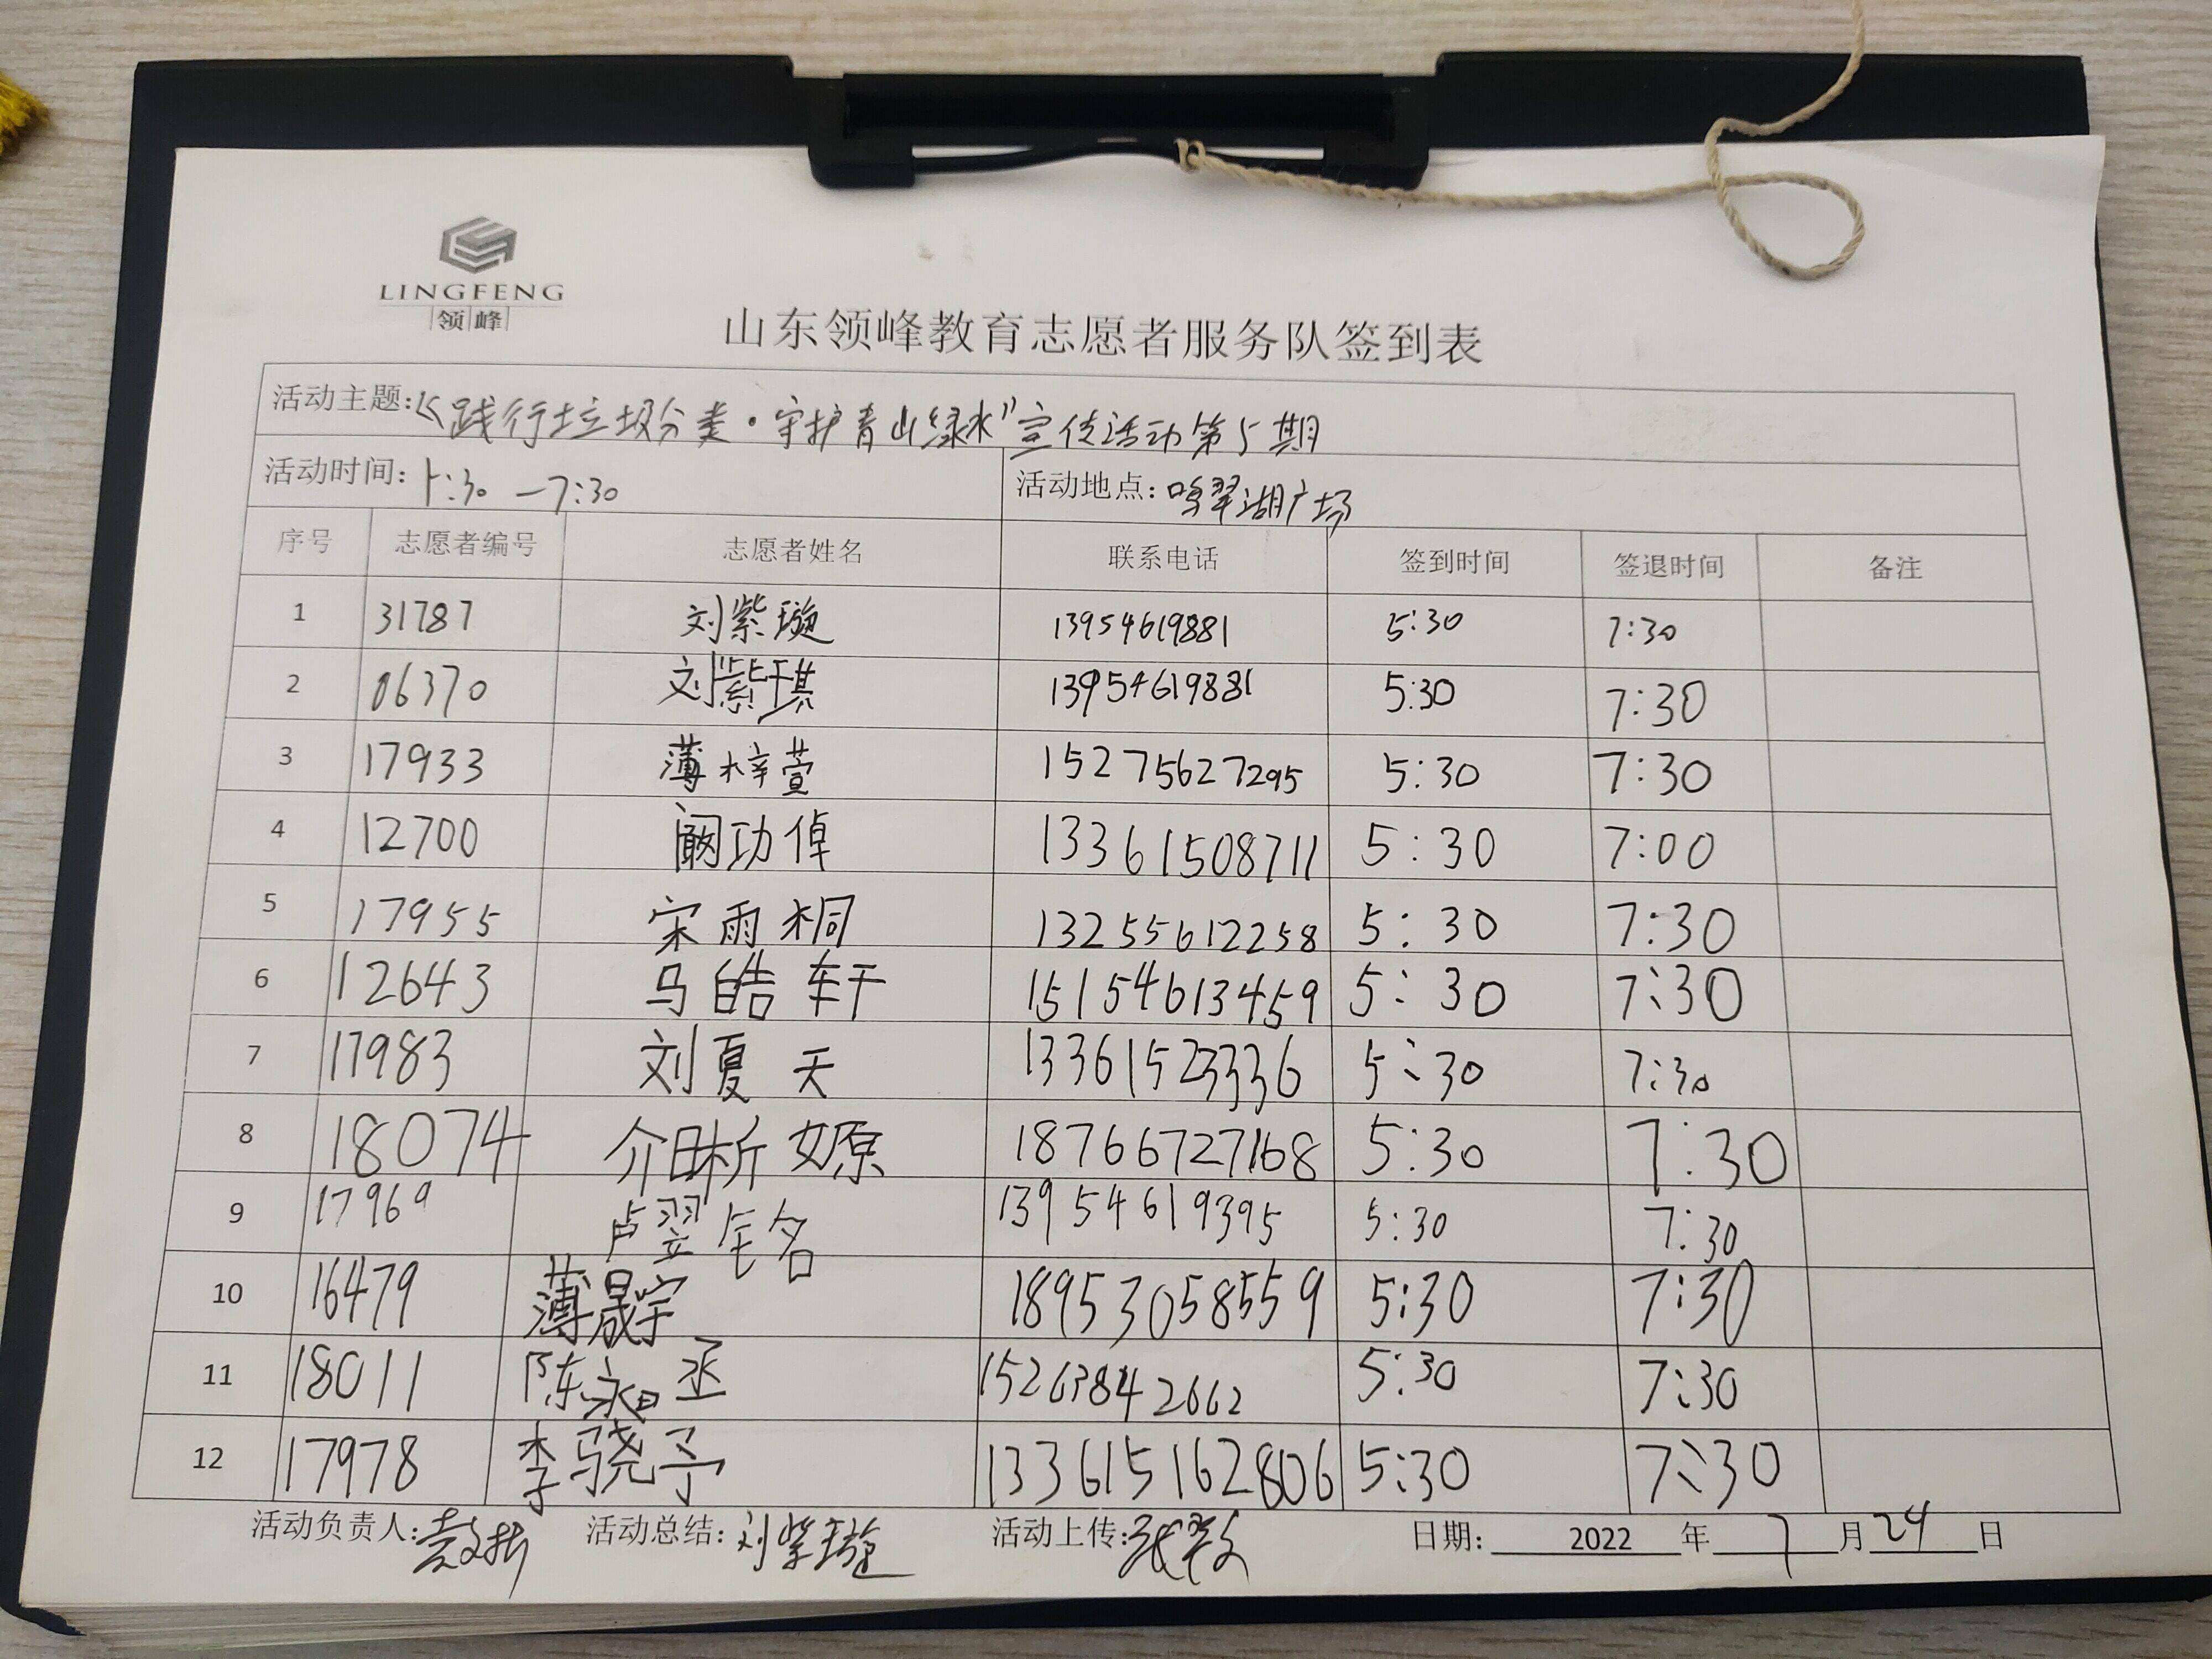 LINGFENG
领峰
山东领峰教育志愿者服务队签到表
活动主题:《践行垃圾分类·守护青山绿水"宣传活动第5期
活动时间: 5:30 —7:30 活动地点: 鸣翠湖广场
序号 志愿者编号 志愿者姓名 联系电话 签到时间 签退时间 备注
1 31787 刘紫璇 13954619881 5:30 7:30
2 06370 刘紫琪 13954619881 5:30 7:30
3 17933 薄梓萱 15275627295 5:30 7:30
4 12700 阚功倬 13361508711 5:30 7:00
5 17955 宋雨桐 13255612258 5:30 7:30
6 12643 马皓轩 15154613459 5:30 7:30
7 17983 刘夏天 13361523336 5:30 7:30
8 18074 介晰嫄 18766727168 5:30 7:30
9 17969 卢翌 名 13954619395 5:30 7:30
10 16479 薄晟宇 18953058559 5:30 7:30
11 18011 陈 丞 15263842662 5:30 7:30
12 17978 李骁予 133615162806 5:30 7:30
活动负责人: 活动总结: 刘紫璇 活动上传: 日期: 2022 年 7 月 24 日